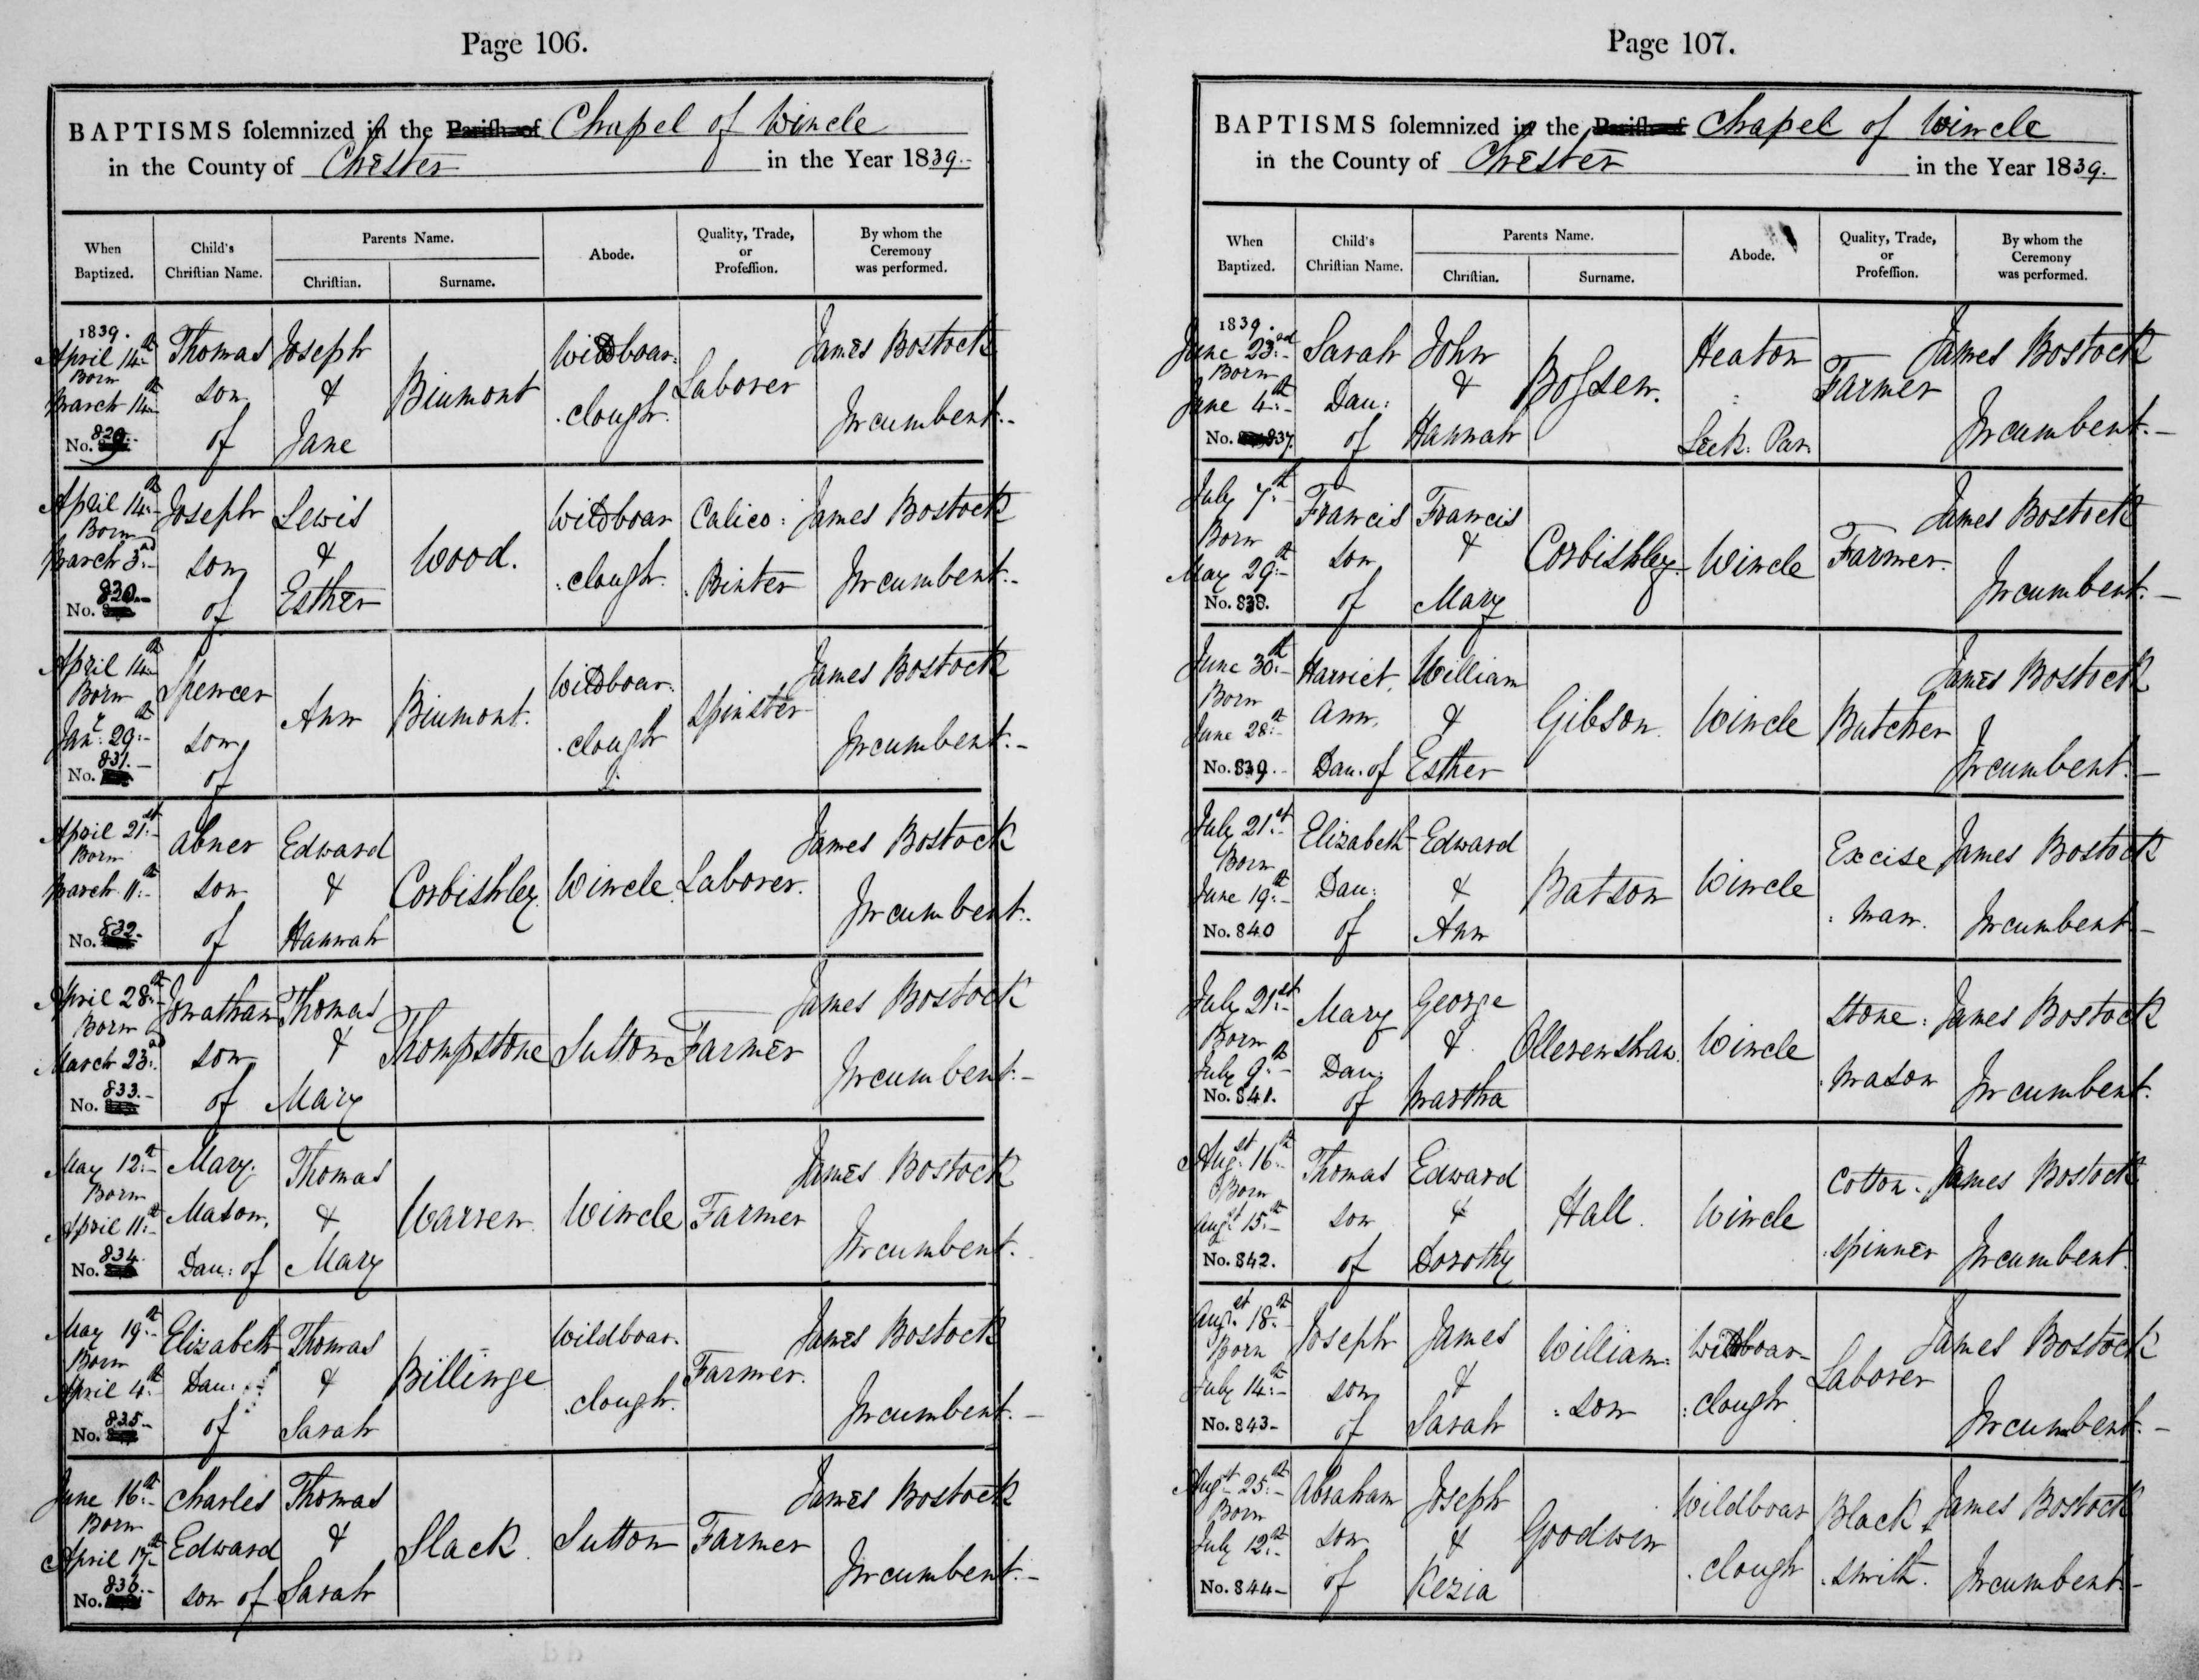 Page 106.
BAPTISMS solemnized in the Parish of Chapel of Wincle
in the County of Chester in the Year 1839.
When Baptized. Child's Christian Name. Parents Name. Christian. Surname. Abode. Quality, Trade, or Profession. By whom the Ceremony was performed.
1839.
April 14th Born March 14th
No. 829.
Thomas son of
Joseph & Jane
Biumont
Wildboar clough.
Laborer
James Bostock Incumbent.
April 14th Born March 3rd
No. 830.
Joseph son of
Lewis & Esther
Wood.
Wildboar clough.
Calico: Printer
James Bostock Incumbent.
April 14th Born Janr. 29th
No. 831.
Spencer son of
Ann
Biumont.
Wildboar: clough
Spinster
James Bostock Incumbent.
April 21st Born March 11th
No. 832.
Abner son of
Edward & Hannah
Corbishley.
Wincle
Laborer.
James Bostock Incumbent.
April 28th Born March 23rd
No. 833.
Jonathan son of
Thomas & Mary
Thompstone
Sutton
Farmer
James Bostock Incumbent.
May 12th Born April 11th
No. 834.
Mary Mason, Dau: of
Thomas & Mary
Warren.
Wincle
Farmer
James Bostock Incumbent.
May 19th Born April 4th
No. 835
Elizabeth Dau: of
Thomas & Sarah
Billinge
Wildboar. clough.
Farmer.
James Bostock Incumbent.
June 16th Born April 17th
No. 836.
Charles Edward son of
Thomas & Sarah
Slack.
Sutton
Farmer
James Bostock Incumbent.
Page 107.
BAPTISMS solemnized in the Parish of Chapel of Wincle
in the County of Chester in the Year 1839.
When Baptized. Child's Christian Name. Parents Name. Christian. Surname. Abode. Quality, Trade, or Profession. By whom the Ceremony was performed.
1839.
June 23rd Born June 4th
No. 837.
Sarah Dau: of
John & Hannah
Heaton Leek: Par.
Farmer
James Bostock Incumbent.
July 7th Born May 29th
No. 838.
Francis son of
Francis & Mary
Corbishley.
Wincle
Farmer.
James Bostock Incumbent.
June 30th Born June 28th
No. 839.
Harriet, Ann, Dau. of
William & Esther
Gibson.
Wincle
Butcher
James Bostock Incumbent.
July 21st Born June 19th
No. 840
Elizabeth Dau: of
Edward & Ann
Batson
Wincle
Excise man.
James Bostock Incumbent
July 21st Born July 9th
No. 841.
Mary Dau: of
George & Martha
Ollerenshaw.
Wincle
Stone: Mason
James Bostock Incumbent.
Augst. 16th Born Augst 15th
No. 842.
Thomas son of
Edward & Dorothy
Hall.
Wincle
Cotton. spinner
James Bostock Incumbent.
Augst. 18th Born July 14th
No. 843
Joseph son of
James & Sarah
William: son
Wildboar- clough
Laborer
James Bostock Incumbent.
Augst 25th Born July 12th
No. 844
Abraham son of
Joseph & Kezia
Goodwin
Wildboar clough
Black smith.
James Bostock Incumbent